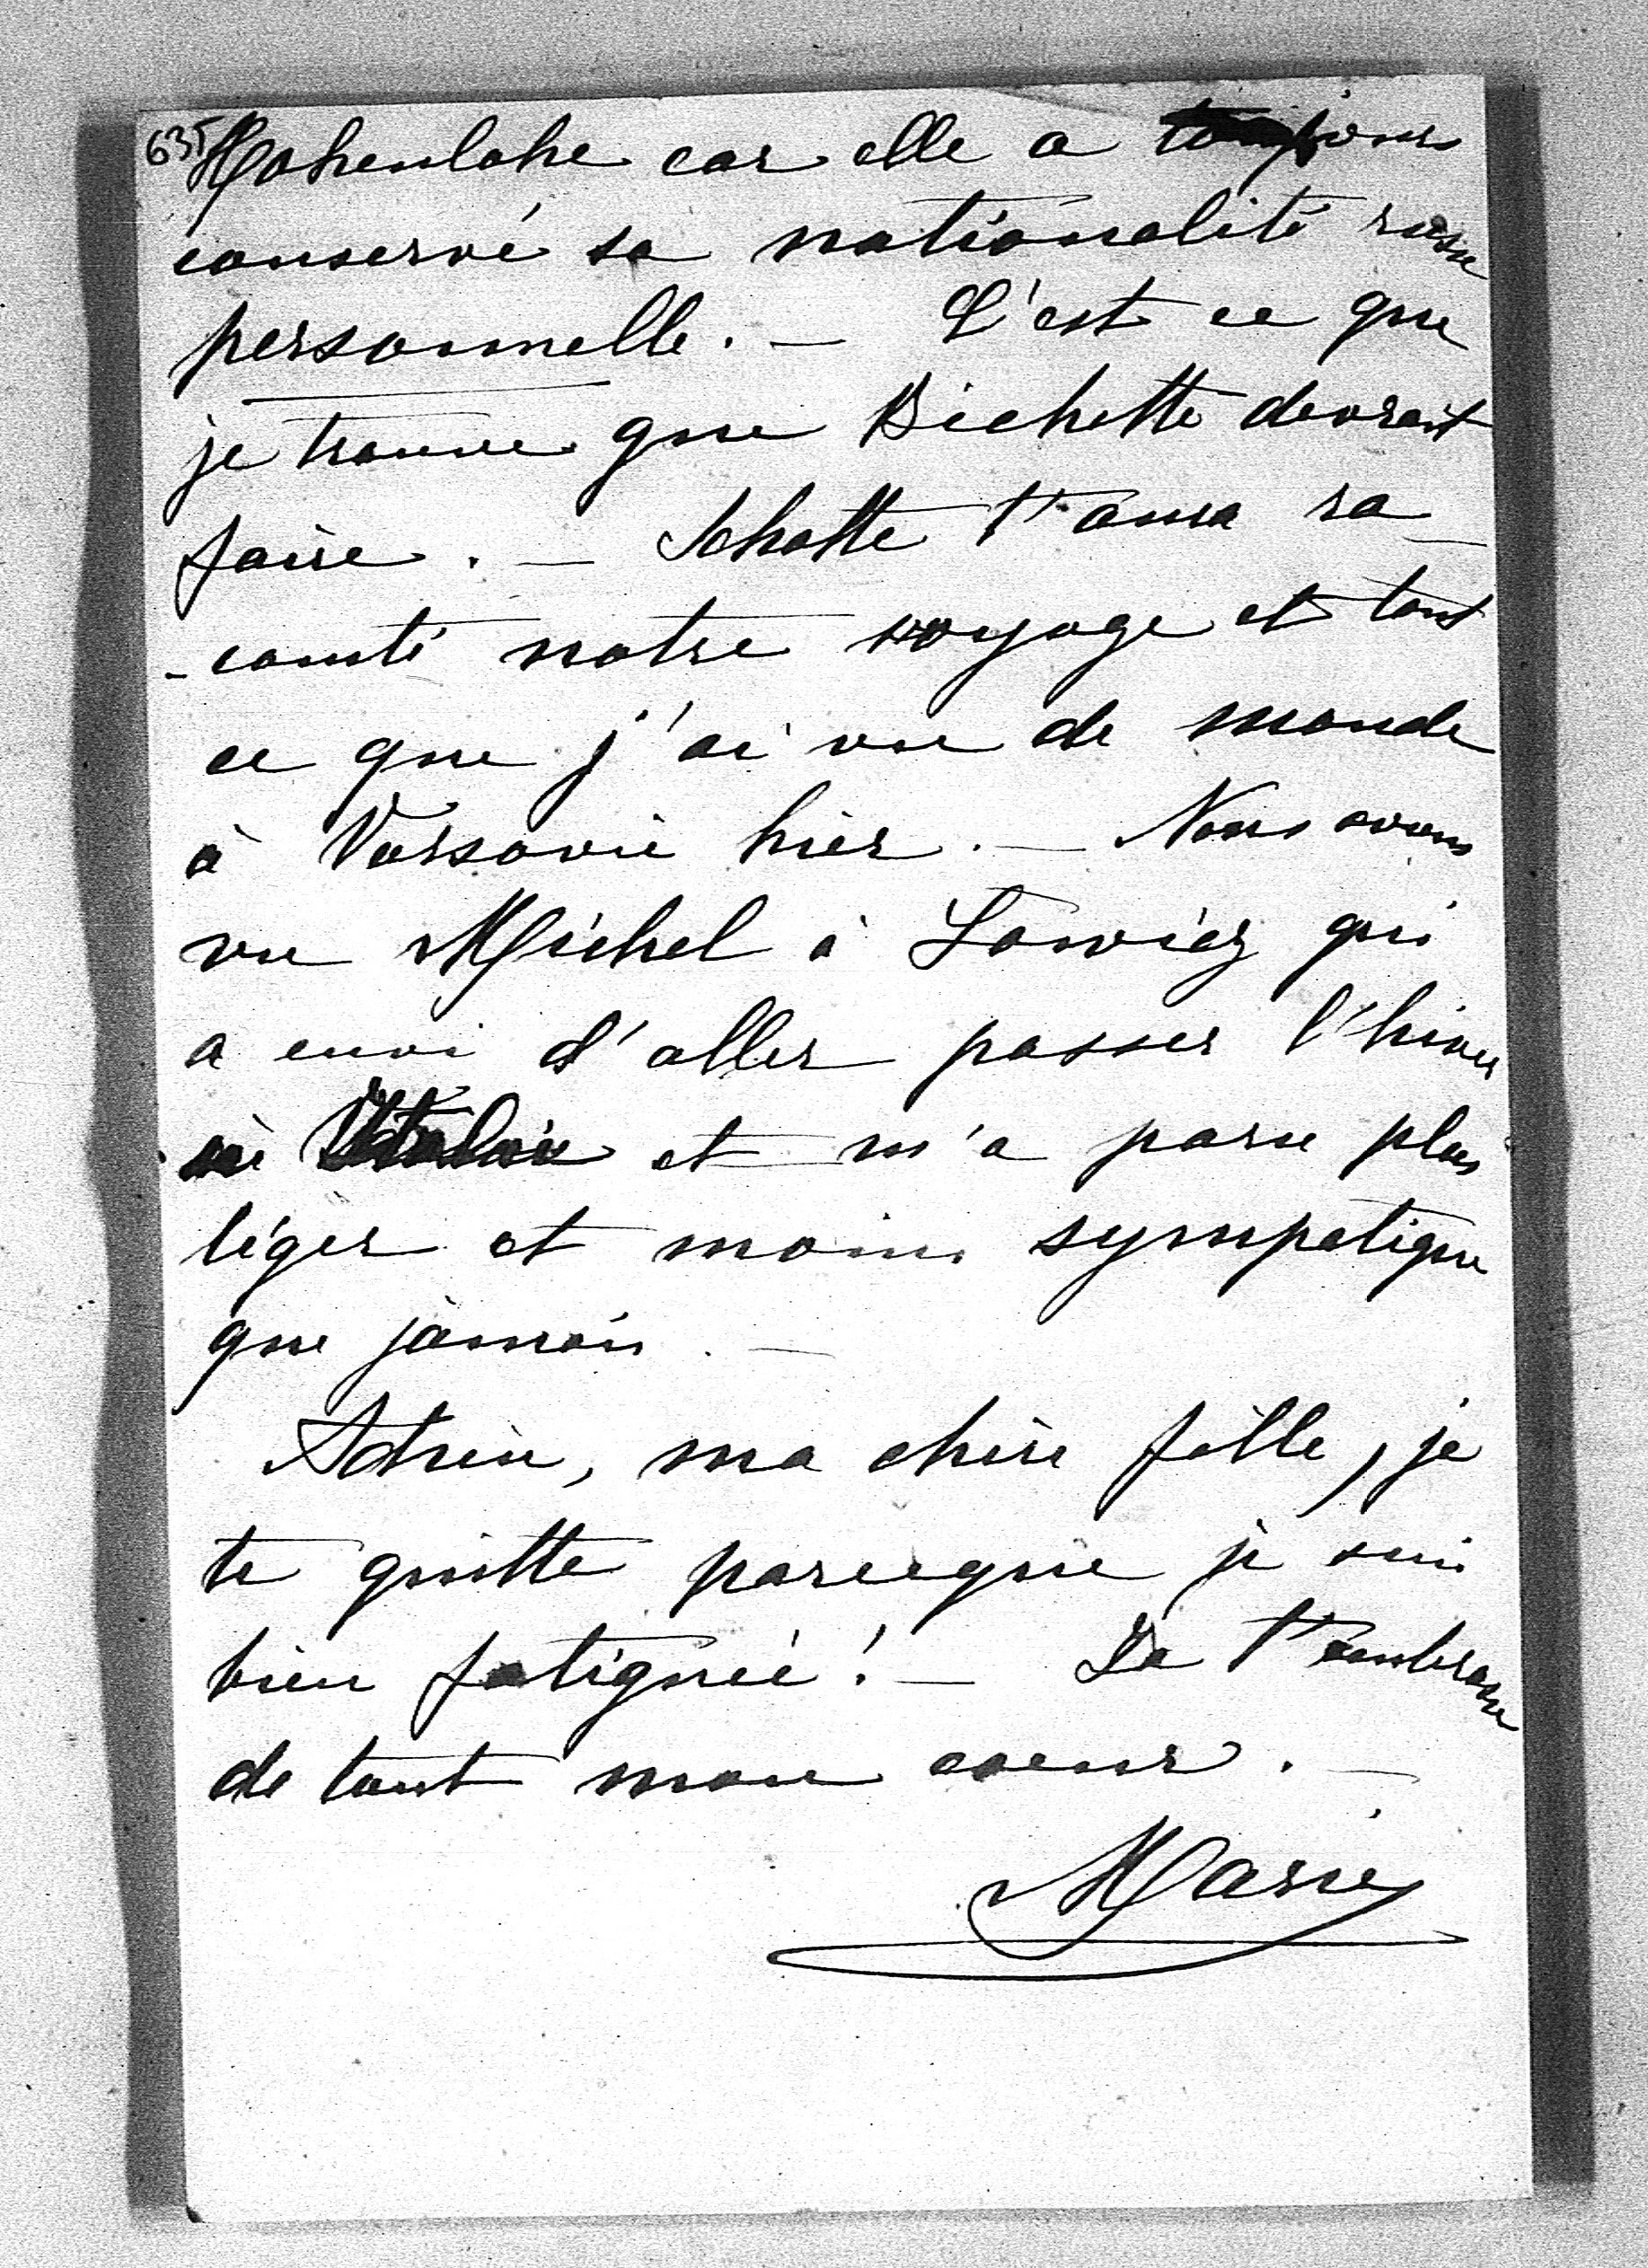 635
Hohenlohe car elle a toujours
conservé sa nationalité russe
personnelle. — C'est ce que
je trouve que Bichette devrait
faire. — Schatte t'aura ra-
-conté notre voyage et tout
ce que j'ai vu de monde
à Varsovie hier. — Nous avons
vu Michel à Lowicz qui
a envi d'aller passer l'hiver
et m'a paru plus
léger et moins sympatique
que jamais. —
Adieu, ma chère fille, je
te quitte parceque je suis
bien fatiguée! — Je t'embrasse
de tout mon coeur. —
Marie